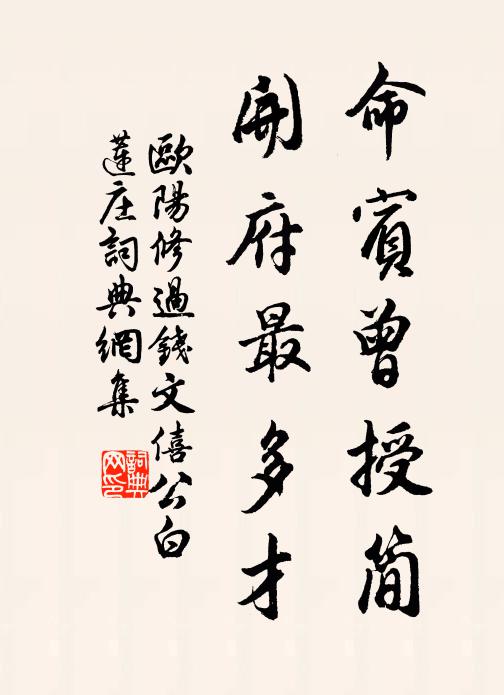 命賓曾授簡
開府最多才
歐陽修過錢文僖公白
蓮庄詞典網集
詞典网印